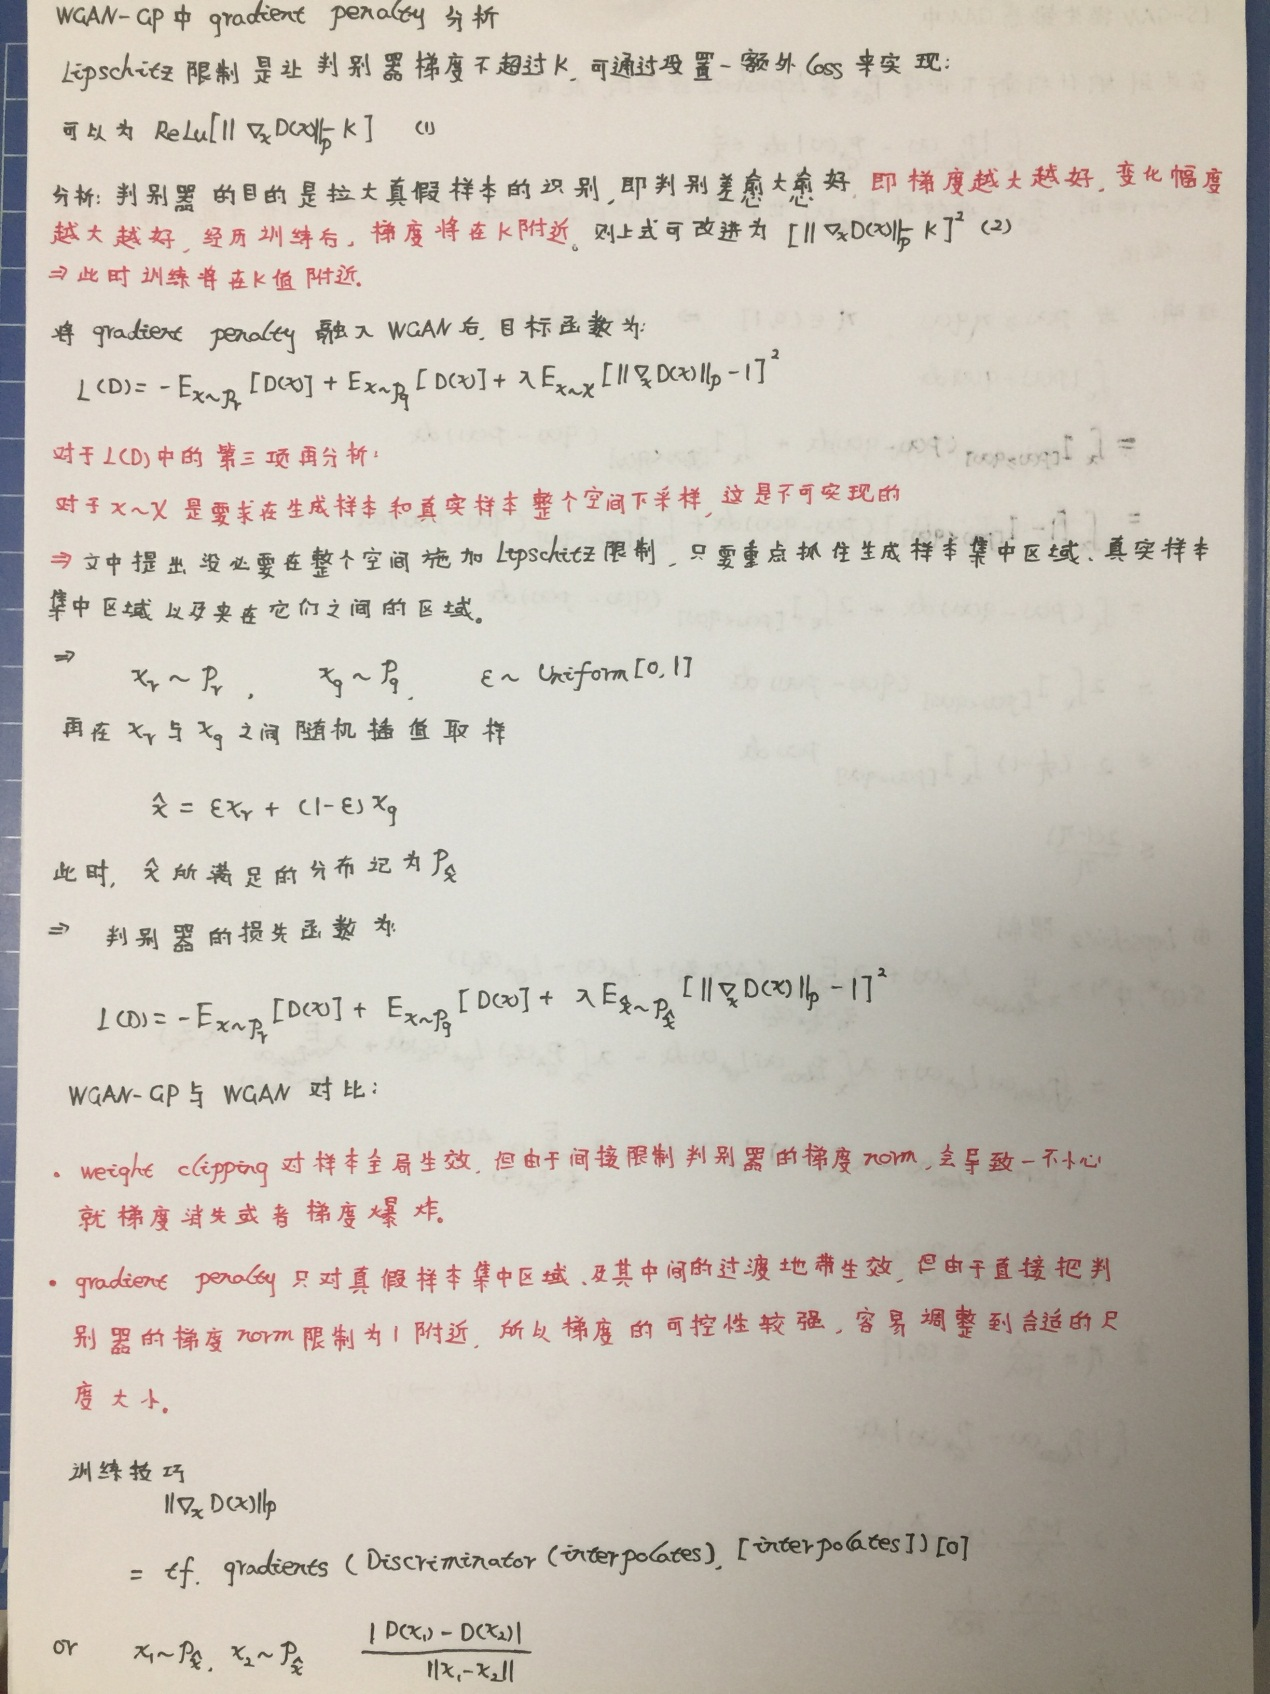 WGAN-GP中 gradient penalty 分析
Lipschitz 限制是让判别器梯度不超过K,可通过设置一额外loss来实现:
可以为 ReLu[||∇ₓD(x)||ₚ-K] (1)
分析:判别器的目的是拉大真假样本的识别,即判别差愈大愈好,即梯度越大越好,变化幅度
越大越好,经历训练后,梯度将在K附近。则上式可改进为 [||∇ₓD(x)||ₚ-K]² (2)
⇒此时训练将在K值附近.
将 gradient penalty 融入 WGAN后,目标函数为:
L(D)= -E_{x~Pr}[D(x)] + E_{x~Pg}[D(x)] + λE_{x~X}[||∇ₓD(x)||ₚ-1]²
对于L(D)中的第三项再分析:
对于x~X是要求在生成样本和真实样本整个空间下采样,这是不可实现的
⇒ 文中提出没必要在整个空间施加Lipschitz限制,只要重点抓住生成样本集中区域、真实样本
集中区域以及夹在它们之间的区域。
⇒ xr ~ Pr, xg ~ Pg, ε ~ Uniform[0,1]
再在 xr 与 xg 之间随机插值取样
x̂ = εxr + (1-ε)xg
此时,x̂所满足的分布记为P_x̂
⇒ 判别器的损失函数为:
L(D)= -E_{x~Pr}[D(x)] + E_{x~Pg}[D(x)] + λE_{x̂~P_x̂}[||∇ₓD(x)||ₚ-1]²
WGAN-GP与 WGAN 对比:
· weight clipping 对样本全局生效,但由于间接限制判别器的梯度norm,会导致一不小心
就梯度消失或者梯度爆炸。
· gradient penalty 只对真假样本集中区域、及其中间的过渡地带生效,但由于直接把判
别器的梯度norm限制为1附近,所以梯度的可控性较强,容易调整到合适的尺
度大小。
训练技巧
||∇ₓD(x)||ₚ
= tf. gradients (Discriminator (interpolates), [interpolates])[0]
or x₁~P_x̂, x₂~P_x̂ |D(x₁)-D(x₂)| / ||x₁-x₂||